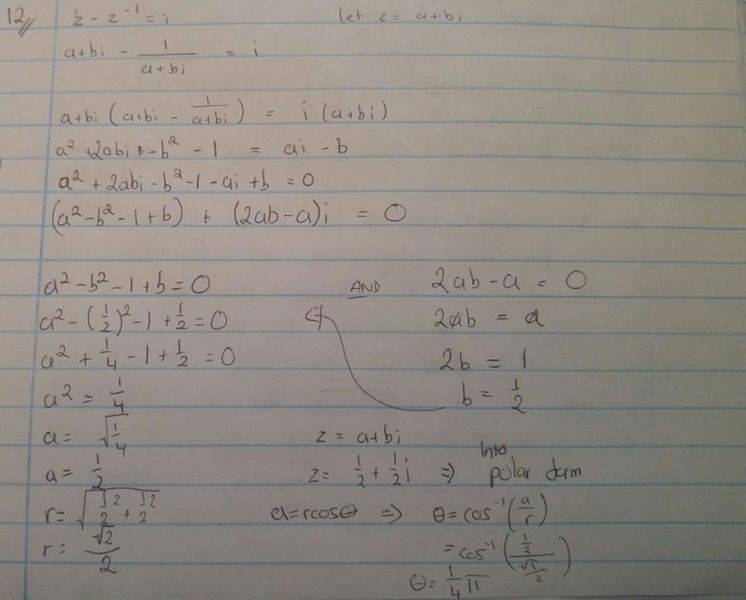 12// z - z⁻¹ = i let z = a+bi
a+bi - 1/(a+bi) = i
a+bi (a+bi - 1/(a+bi)) = i (a+bi)
a² + 2abi - b² - 1 = ai - b
a² + 2abi - b² - 1 - ai + b = 0
(a² - b² - 1 + b) + (2ab - a)i = 0
a² - b² - 1 + b = 0 AND 2ab - a = 0
a² - (1/2)² - 1 + 1/2 = 0 2ab = a
a² + 1/4 - 1 + 1/2 = 0 2b = 1
a² = 1/4 b = 1/2
a = √(1/4) z = a+bi
a = 1/2 z = 1/2 + 1/2 i ⇒ Into polar form
r = √(1/2² + 1/2²) a = rcosθ ⇒ θ = cos⁻¹(a/r)
r = √2/2 = cos⁻¹((1/2)/(√2/2))
θ = 1/4 π